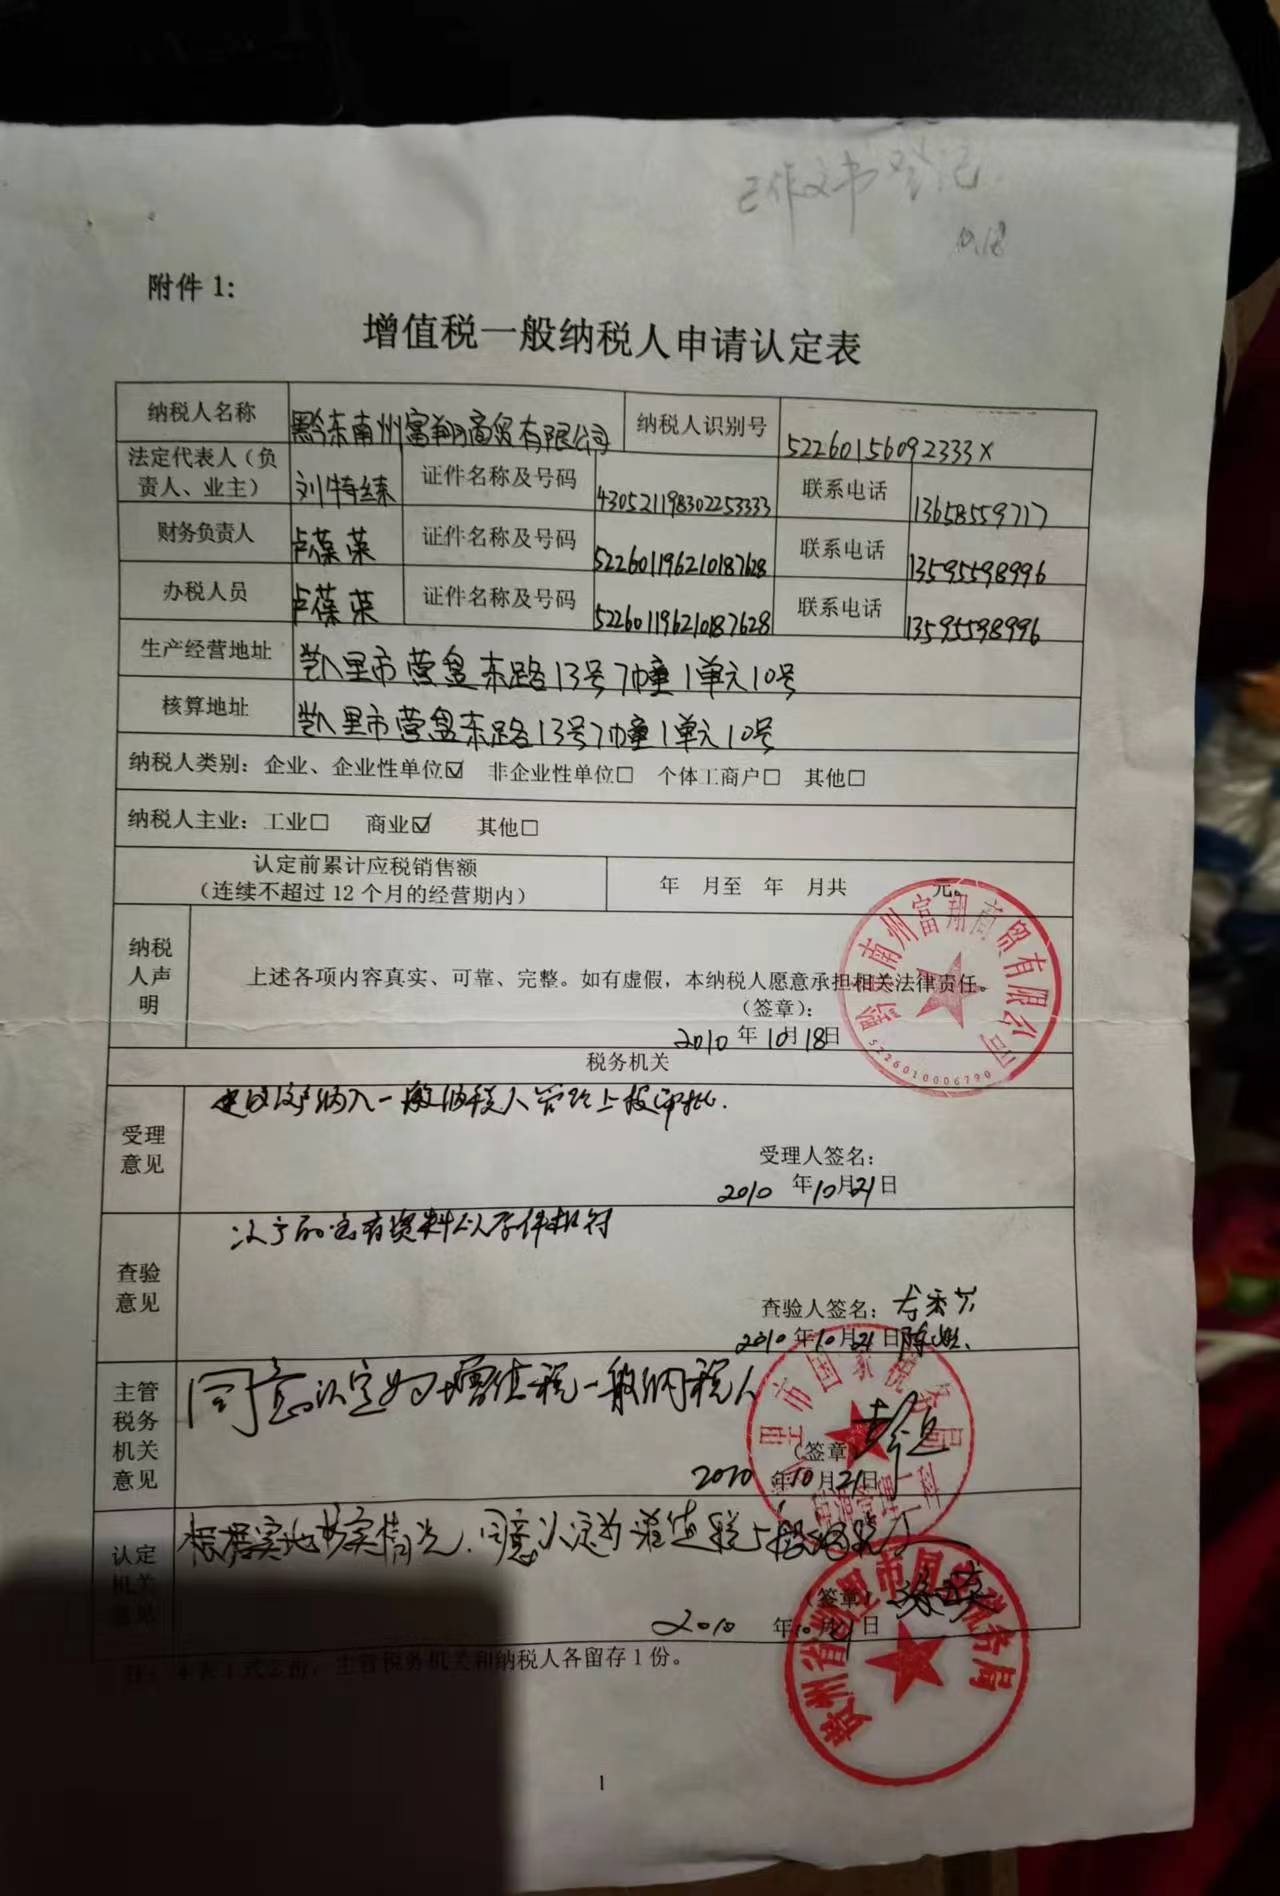 工作文书登记
附件 1：
增值税一般纳税人申请认定表
纳税人名称 黔东南州富翔商贸有限公司 纳税人识别号 52260156092333X
法定代表人（负责人、业主） 刘特 证件名称及号码 430521198302253333 联系电话 13658559717
财务负责人 卢葆荣 证件名称及号码 522601196210187628 联系电话 13595598996
办税人员 卢葆荣 证件名称及号码 522601196210187628 联系电话 13595598996
生产经营地址 凯里市营盘东路13号7幢1单元10号
核算地址 凯里市营盘东路13号7幢1单元10号
纳税人类别：企业、企业性单位☑ 非企业性单位□ 个体工商户□ 其他□
纳税人主业：工业□ 商业☑ 其他□
认定前累计应税销售额
（连续不超过 12 个月的经营期内） 年 月至 年 月共 元。
纳税人声明
上述各项内容真实、可靠、完整。如有虚假，本纳税人愿意承担相关法律责任。
（签章）：
2010 年 10月 18日
黔东南州富翔商贸有限公司
5226010006790
税务机关
受理意见
纳入一般纳税人管理上报审批.
受理人签名：
2010 年10月21日
查验意见
资料
查验人签名：
2010年10月21日
主管税务机关意见
同意认定为增值税一般纳税人
（签章）
2010 年10月21日
里市国家税务局
认定机关意见
根据实地 情况，同意认定为增值税一般纳税人
（签章）
2010 年10月21日
贵州省凯里市国家税务局
注：本表1式2份，主管税务机关和纳税人各留存1份。
1